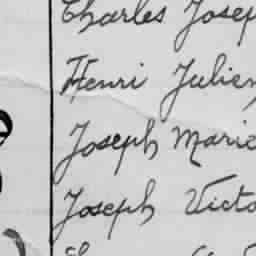 Charles Josep
Henri Julien
Joseph Marie
Joseph Victo